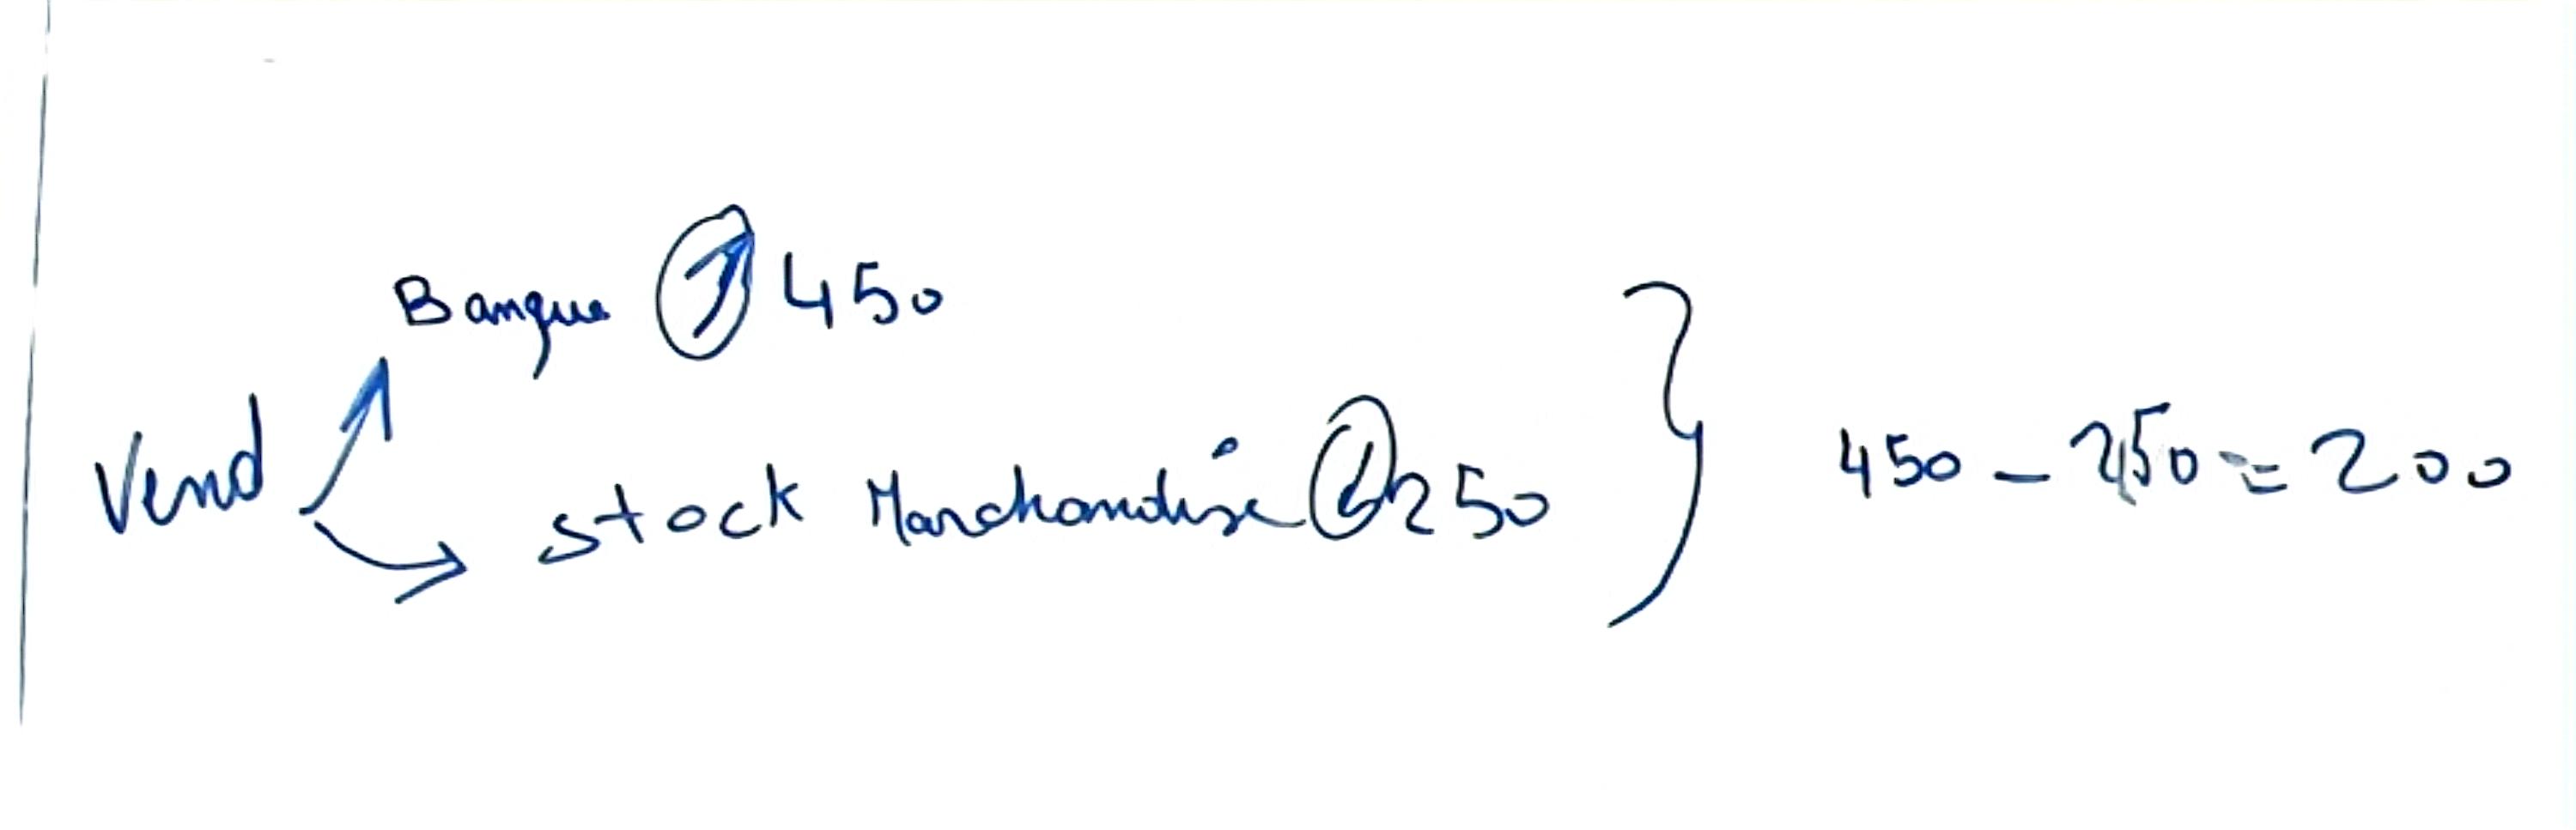 Banque ↗ 450
Vend
stock Marchandise ↓ 250
450 - 250 = 200